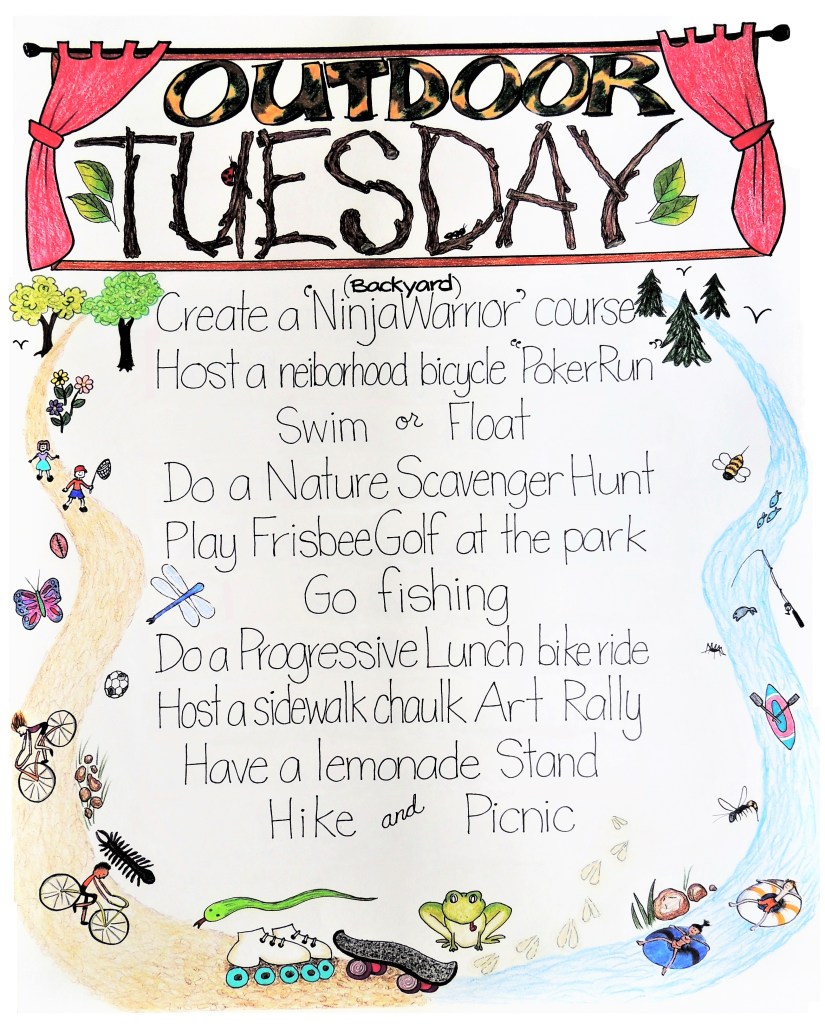 OUTDOOR
TUESDAY
(Backyard)
Create a "Ninja Warrior" course
Host a neiborhood bicycle "Poker Run"
Swim or Float
Do a Nature Scavenger Hunt
Play Frisbee Golf at the park
Go fishing
Do a Progressive Lunch bike ride
Host a sidewalk chaulk Art Rally
Have a lemonade Stand
Hike and Picnic